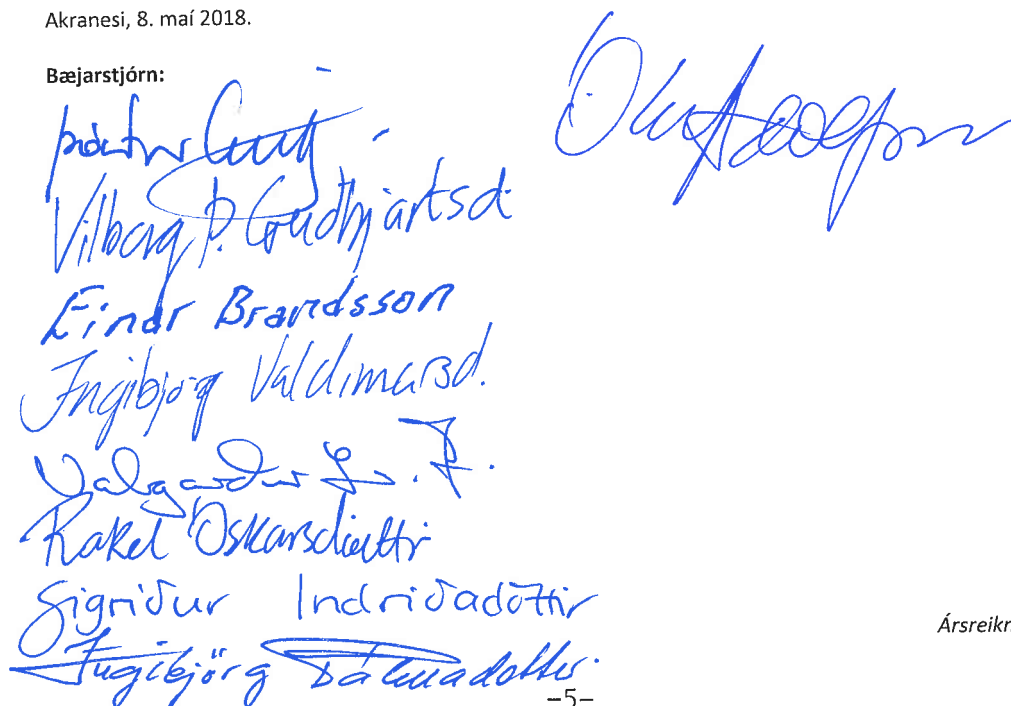 Akranesi, 8. maí 2018.
Bæjarstjórn:
Vilborg Þ. Guðbjartsd
Einar Brandsson
Ingibjörg Valdimarsd.
Valgarður L. J.
Rakel Óskarsdóttir
Sigríður Indriðadóttir
Ingibjörg Pálmadóttir
Ársreikn
-5-